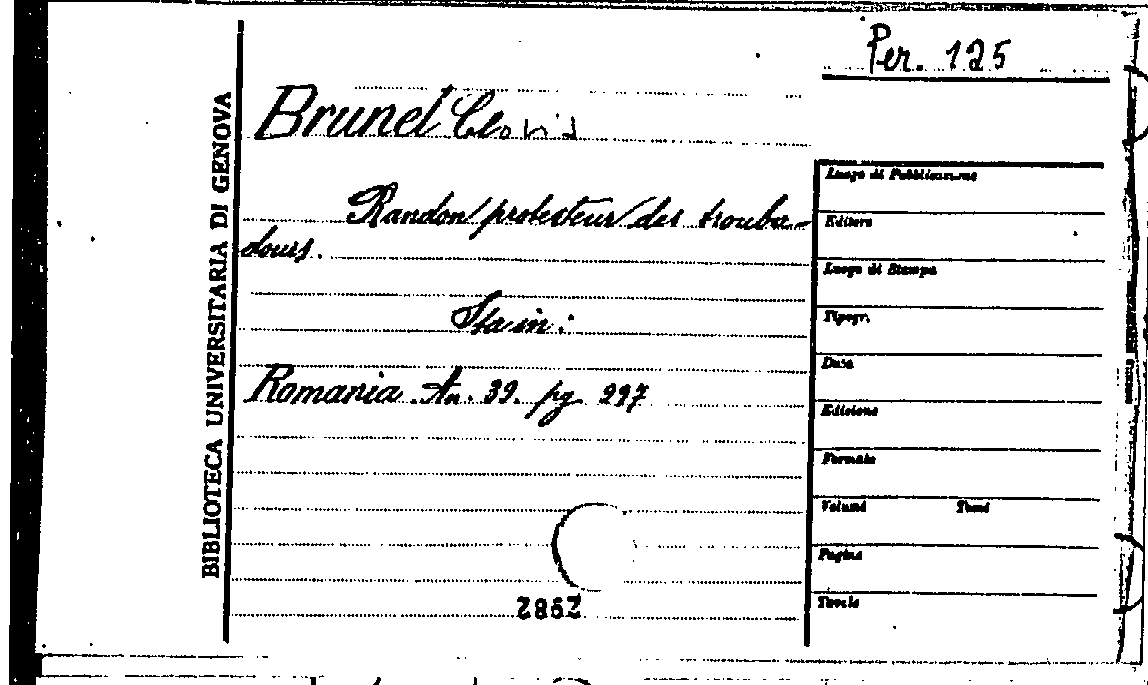 Per. 125
BIBLIOTECA UNIVERSITARIA DI GENOVA
Brunel Clovis
Randon protecteur des trouba-
dours.
Sta in:
Romania. An. 39. pg 297
2982
Luogo di Pubblicazione
Editore
Luogo di Stampa
Tipogr.
Data
Edizione
Formato
Volumi Tomi
Pagine
Tavole